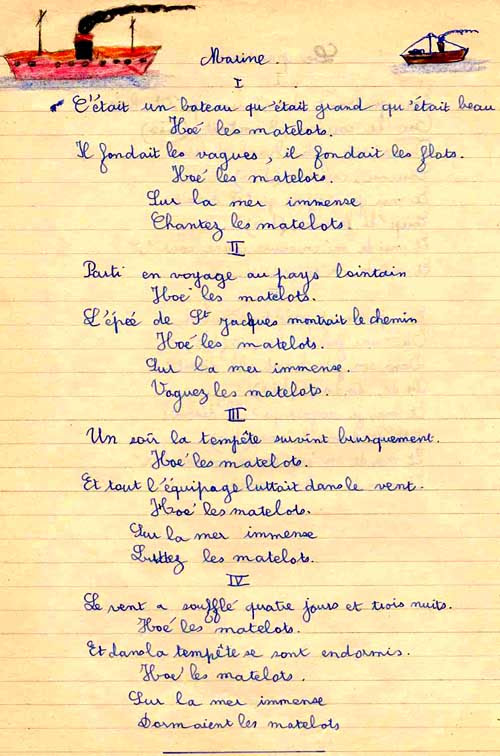 Marine.
I
C'était un bateau qu'était grand qu'était beau
Hoé les matelots.
Il fondait les vagues, il fondait les flots.
Hoé les matelots.
Sur la mer immense
Chantez les matelots.
II
Parti en voyage au pays lointain
Hoé les matelots.
L'épée de St Jacques montrait le chemin
Hoé les matelots.
Sur la mer immense.
Voguez les matelots.
III
Un soir la tempête survint brusquement.
Hoé les matelots.
Et tout l'équipage luttait dans le vent.
Hoé les matelots.
Sur la mer immense
Luttez les matelots.
IV
Le vent a soufflé quatre jours et trois nuits.
Hoé les matelots.
Et dans la tempête se sont endormis.
Hoé les matelots.
Sur la mer immense
Dormaient les matelots